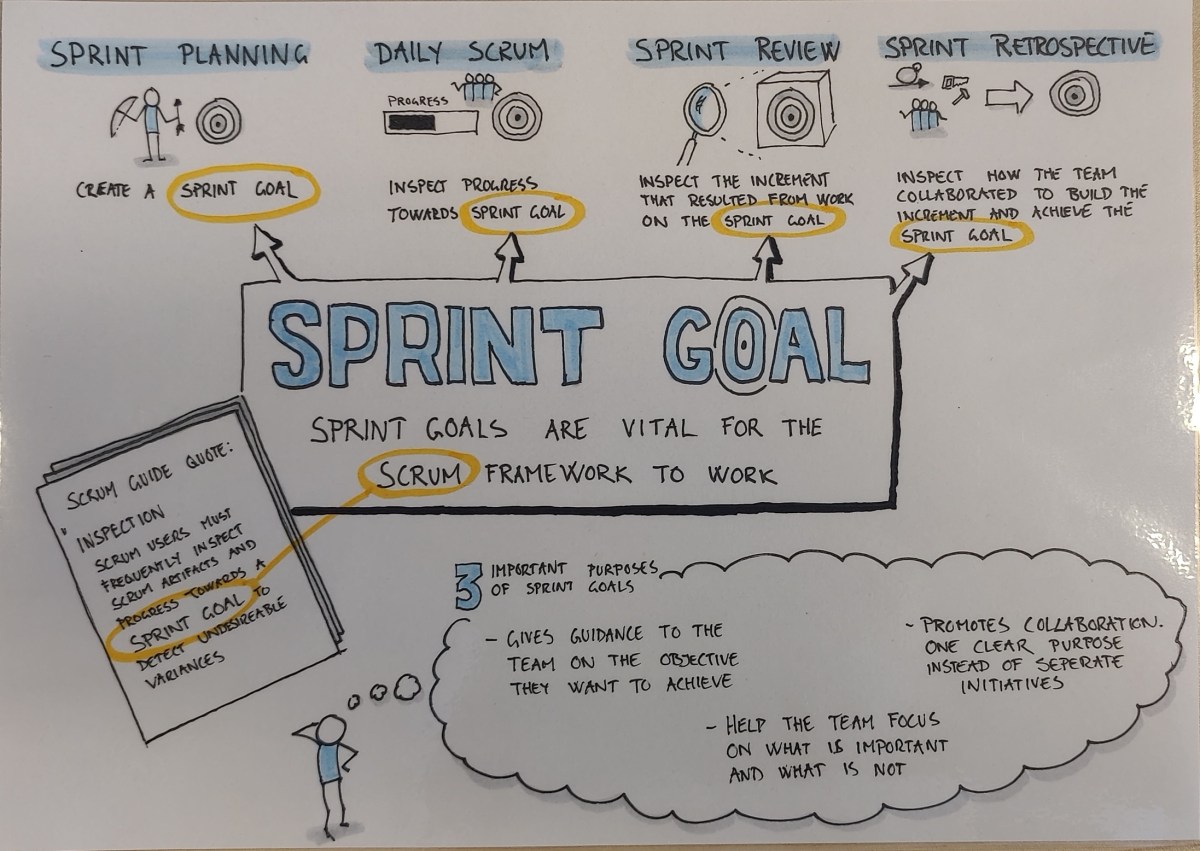 SPRINT PLANNING
CREATE A SPRINT GOAL
DAILY SCRUM
PROGRESS
INSPECT PROGRESS
TOWARDS SPRINT GOAL
SPRINT REVIEW
INSPECT THE INCREMENT
THAT RESULTED FROM WORK
ON THE SPRINT GOAL
SPRINT RETROSPECTIVE
INSPECT HOW THE TEAM
COLLABORATED TO BUILD THE
INCREMENT AND ACHIEVE THE
SPRINT GOAL
SPRINT GOAL
SPRINT GOALS ARE VITAL FOR THE
SCRUM FRAMEWORK TO WORK
SCRUM GUIDE QUOTE:
"INSPECTION
SCRUM USERS MUST
FREQUENTLY INSPECT
SCRUM ARTIFACTS AND
PROGRESS TOWARDS A
SPRINT GOAL TO
DETECT UNDESIREABLE
VARIANCES
3 IMPORTANT PURPOSES
OF SPRINT GOALS
- GIVES GUIDANCE TO THE
TEAM ON THE OBJECTIVE
THEY WANT TO ACHIEVE
- PROMOTES COLLABORATION.
ONE CLEAR PURPOSE
INSTEAD OF SEPERATE
INITIATIVES
- HELP THE TEAM FOCUS
ON WHAT IS IMPORTANT
AND WHAT IS NOT